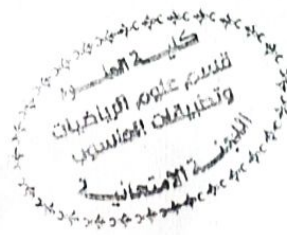 كلية العلوم
قسم علوم الرياضيات
وتطبيقات الحاسوب
اللجنة الامتحانية